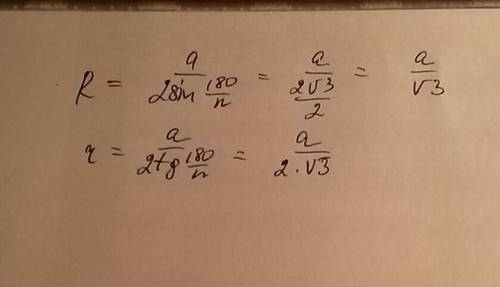 R = a / (2 sin 180/n) = a / (2√3/2) = a/√3
r = a / (2 tg 180/n) = a / (2·√3)